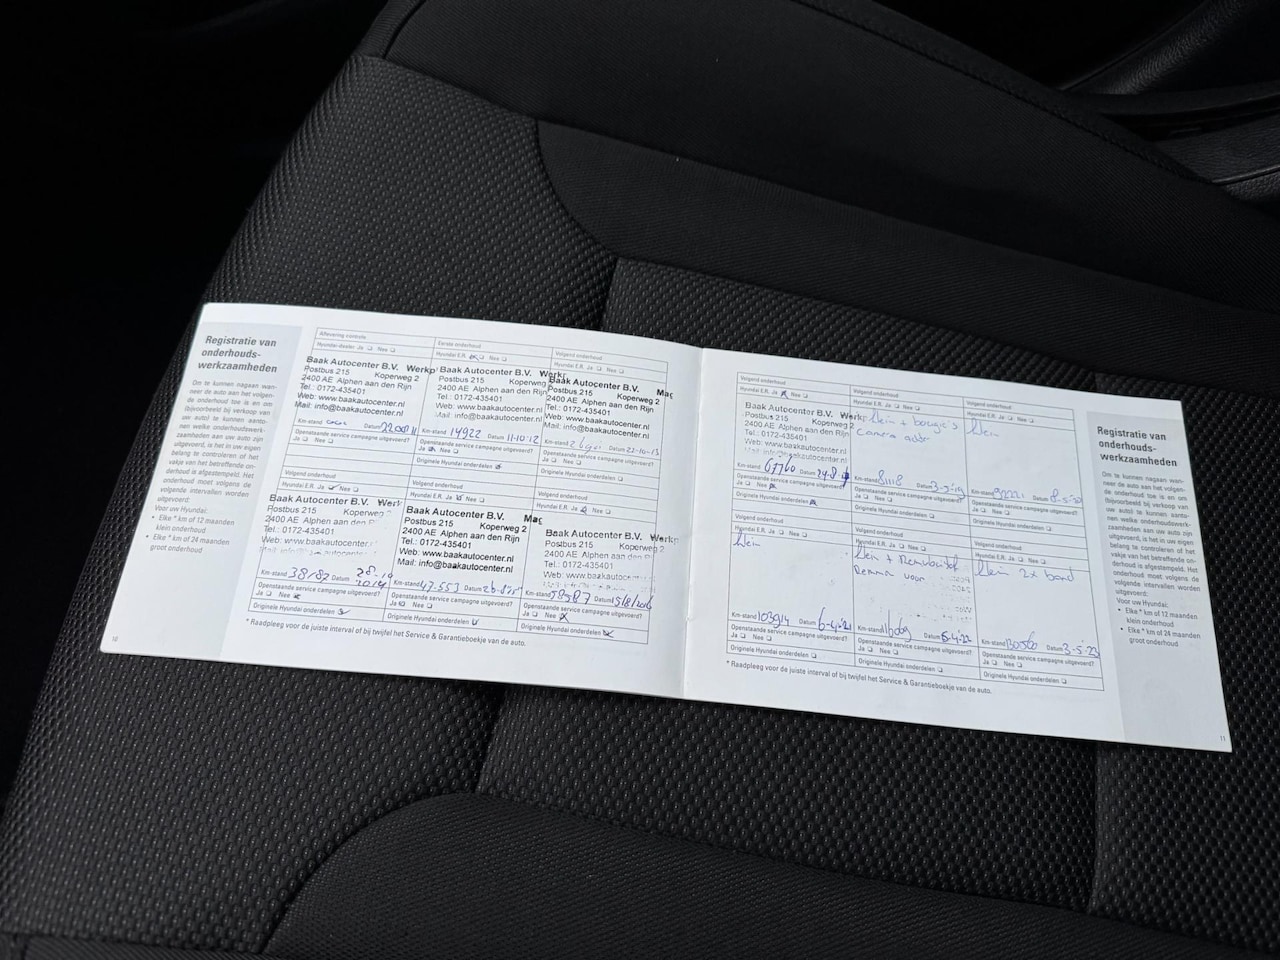 Registratie van
onderhouds-
werkzaamheden
Om te kunnen nagaan wan-
neer de auto aan het volgen-
de onderhoud toe is en om
(bijvoorbeeld bij verkoop van
uw auto) te kunnen aanto-
nen welke onderhoudswerk-
zaamheden aan uw auto zijn
uitgevoerd, is het in uw eigen
belang te controleren of het
vakje van de betreffende on-
derhoud is afgestempeld. Het
onderhoud moet volgens de
volgende intervallen worden
uitgevoerd:
Voor uw Hyundai:
• Elke * km of 12 maanden
klein onderhoud
• Elke * km of 24 maanden
groot onderhoud
10
Aflevering controle
Hyundai-dealer Ja Nee
Baak Autocenter B.V. Werkp
Postbus 215 Koperweg 2
2400 AE Alphen aan den Rijn
Tel.: 0172-435401
Web: www.baakautocenter.nl
Mail: info@baakautocenter.nl
Km-stand Datum
Openstaande service campagne uitgevoerd?
Ja Nee
Eerste onderhoud
Hyundai E.R. Ja Nee
Baak Autocenter B.V. Werkp
Postbus 215 Koperweg
2400 AE Alphen aan den Rijn
Tel.: 0172-435401
Web: www.baakautocenter.nl
Mail: info@baakautocenter.nl
Km-stand 14922 Datum 11-10-12
Openstaande service campagne uitgevoerd?
Ja Nee
Originele Hyundai onderdelen
Volgend onderhoud
Hyundai E.R. Ja Nee
Baak Autocenter B.V. Mag
Postbus 215
2400 AE Alphen aan den Rijn
Tel.: 0172-435401
Web: www.baakautocenter.nl
Mail: info@baakautocenter.nl
Km-stand Datum 22-10-13
Openstaande service campagne uitgevoerd?
Ja Nee
Originele Hyundai onderdelen
Volgend onderhoud
Hyundai E.R. Ja Nee
Baak Autocenter B.V. Werk
Postbus 215 Koperweg 2
2400 AE Alphen aan den
Tel.: 0172-435401
Web: www.baakautocenter.nl
Km-stand 38187 Datum
Openstaande service campagne uitgevoerd?
Ja Nee
Originele Hyundai onderdelen
Volgend onderhoud
Hyundai E.R. Ja Nee
Baak Autocenter B.V. Mag
Postbus 215 Koperweg 2
2400 AE Alphen aan den Rijn
Tel.: 0172-435401
Web: www.baakautocenter.nl
Mail: info@baakautocenter.nl
Km-stand 47553 Datum
Openstaande service campagne uitgevoerd?
Ja Nee
Originele Hyundai onderdelen
Volgend onderhoud
Hyundai E.R. Ja Nee
Baak Autocenter B.V. Werkp
Postbus 215 Koperweg 2
2400 AE Alphen aan den
Tel.: 0172-435401
Web: www.baakautocenter.nl
Km-stand 58987 Datum
Openstaande service campagne uitgevoerd?
Ja Nee
Originele Hyundai onderdelen
* Raadpleeg voor de juiste interval of bij twijfel het Service & Garantieboekje van de auto.
Volgend onderhoud
Hyundai E.R. Ja Nee
Baak Autocenter B.V. Werkp
Postbus 215 Koperweg 2
2400 AE Alphen aan den Rijn
Tel.: 0172-435401
Web: www.baakautocenter.nl
Km-stand 67760 Datum
Openstaande service campagne uitgevoerd?
Ja Nee
Originele Hyundai onderdelen
Volgend onderhoud
Hyundai E.R. Ja Nee
Klein + bougie's
Camera achter
Km-stand 81118 Datum 3-5-19
Openstaande service campagne uitgevoerd?
Ja Nee
Originele Hyundai onderdelen
Volgend onderhoud
Hyundai E.R. Ja Nee
Klein
Km-stand Datum 8-5-20
Openstaande service campagne uitgevoerd?
Ja Nee
Originele Hyundai onderdelen
Volgend onderhoud
Hyundai E.R. Ja Nee
Klein
Km-stand 103914 Datum 6-4-21
Openstaande service campagne uitgevoerd?
Ja Nee
Originele Hyundai onderdelen
Volgend onderhoud
Hyundai E.R. Ja Nee
Klein + Remvloeistof
Remmen voor
Km-stand Datum 5-4-22
Openstaande service campagne uitgevoerd?
Ja Nee
Originele Hyundai onderdelen
Volgend onderhoud
Hyundai E.R. Ja Nee
Klein 2x band
Km-stand 130560 Datum 3-5-23
Openstaande service campagne uitgevoerd?
Ja Nee
Originele Hyundai onderdelen
* Raadpleeg voor de juiste interval of bij twijfel het Service & Garantieboekje van de auto.
Registratie van
onderhouds-
werkzaamheden
Om te kunnen nagaan wan-
neer de auto aan het volgen-
de onderhoud toe is en om
(bijvoorbeeld bij verkoop van
uw auto) te kunnen aanto-
nen welke onderhoudswerk-
zaamheden aan uw auto zijn
uitgevoerd, is het in uw eigen
belang te controleren of het
vakje van de betreffende on-
derhoud is afgestempeld. Het
onderhoud moet volgens de
volgende intervallen worden
uitgevoerd:
Voor uw Hyundai:
• Elke * km of 12 maanden
klein onderhoud
• Elke * km of 24 maanden
groot onderhoud
11